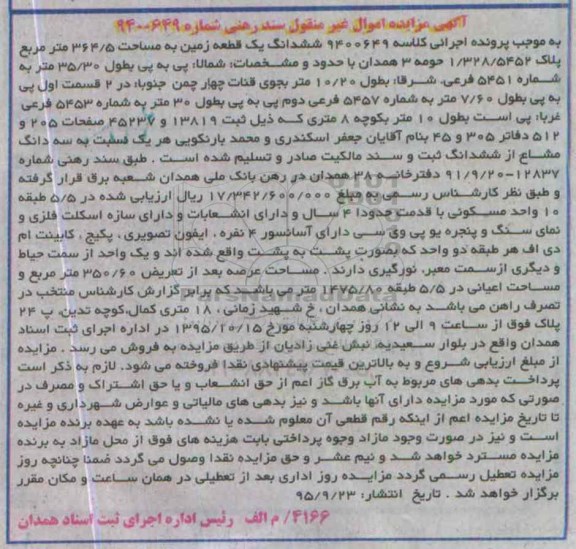 آگهی مزایده اموال غیر منقول سند رهنی شماره ۹۴۰۰۶۴۹
به موجب پرونده اجرائی کلاسه ۹۴۰۰۶۴۹ ششدانگ یک قطعه زمین به مساحت ۳۶۴/۵ متر مربع
پلاک ۱/۳۲۸/۵۴۵۲ حومه ۳ همدان با حدود و مشخصات: شمالا: پی به پی بطول ۳۵/۳۰ متر به
شماره ۵۴۵۱ فرعی. شرقا: بطول ۱۰/۲۰ متر بجوی قنات چهار چمن جنوبا: در ۲ قسمت اول پی
به پی بطول ۷/۶۰ متر به شماره ۵۴۵۷ فرعی دوم پی به پی بطول ۳۰ متر به شماره ۵۴۵۳ فرعی
غربا: پی است بطول ۱۰ متر بکوچه ۸ متری که ذیل ثبت ۱۳۸۱۹ و ۴۵۲۳۷ صفحات ۲۰۵ و
۵۱۲ دفاتر ۳۰۵ و ۴۵ بنام آقایان جعفر اسکندری و محمد بارنکویی هر یک نسبت به سه دانگ
مشاع از ششدانگ ثبت و سند مالکیت صادر و تسلیم شده است. طبق سند رهنی شماره
۱۲۸۳۷-۹۱/۹/۲۰ دفترخانه ۳۸ همدان در رهن بانک ملی همدان شعبه برق قرار گرفته
و طبق نظر کارشناس رسمی به مبلغ ۱۷/۳۴۲/۶۰۰/۰۰۰ ریال ارزیابی شده در ۵/۵ طبقه
۱۰ واحد مسکونی با قدمت حدودا ۴ سال و دارای انشعابات و دارای سازه اسکلت فلزی و
نمای سنگ و پنجره یو پی وی سی دارای آسانسور ۴ نفره، ایفون تصویری، پکیج، کابینت ام
دی اف هر طبقه دو واحد که بصورت پشت به پشت واقع شده اند و یک واحد از سمت حیاط
و دیگری ازسمت معبر، نورگیری دارند. مساحت عرصه بعد از تعریض ۳۵۰/۶۰ متر مربع و
مساحت اعیانی در ۵/۵ طبقه ۱۴۷۵/۸۰ متر می باشد که برابر گزارش کارشناس منتخب در
تصرف راهن می باشد به نشانی همدان، خ شهید زمانی، ۱۸ متری کمال،کوچه تدین، پ ۲۴
پلاک فوق از ساعت ۹ الی ۱۲ روز چهارشنبه مورخ ۱۳۹۵/۱۰/۱۵ در اداره اجرای ثبت اسناد
همدان واقع در بلوار سعیدیه، نبش غنی زادیان از طریق مزایده به فروش می رسد. مزایده
از مبلغ ارزیابی شروع و به بالاترین قیمت پیشنهادی نقدا فروخته می شود. لازم به ذکر است
پرداخت بدهی های مربوط به آب برق گاز اعم از حق انشعاب و یا حق اشتراک و مصرف در
صورتی که مورد مزایده دارای آنها باشد و نیز بدهی های مالیاتی و عوارض شهرداری و غیره
تا تاریخ مزایده اعم از اینکه رقم قطعی آن معلوم شده یا نشده باشد به عهده برنده مزایده
است و نیز در صورت وجود مازاد وجوه پرداختی بابت هزینه های فوق از محل مازاد به برنده
مزایده مسترد خواهد شد و نیم عشر و حق مزایده نقدا وصول می گردد ضمنا چنانچه روز
مزایده تعطیل رسمی گردد مزایده روز اداری بعد از تعطیلی در همان ساعت و مکان مقرر
برگزار خواهد شد. تاریخ انتشار: ۹۵/۹/۲۳
۴۱۶۶/ م الف رئیس اداره اجرای ثبت اسناد همدان